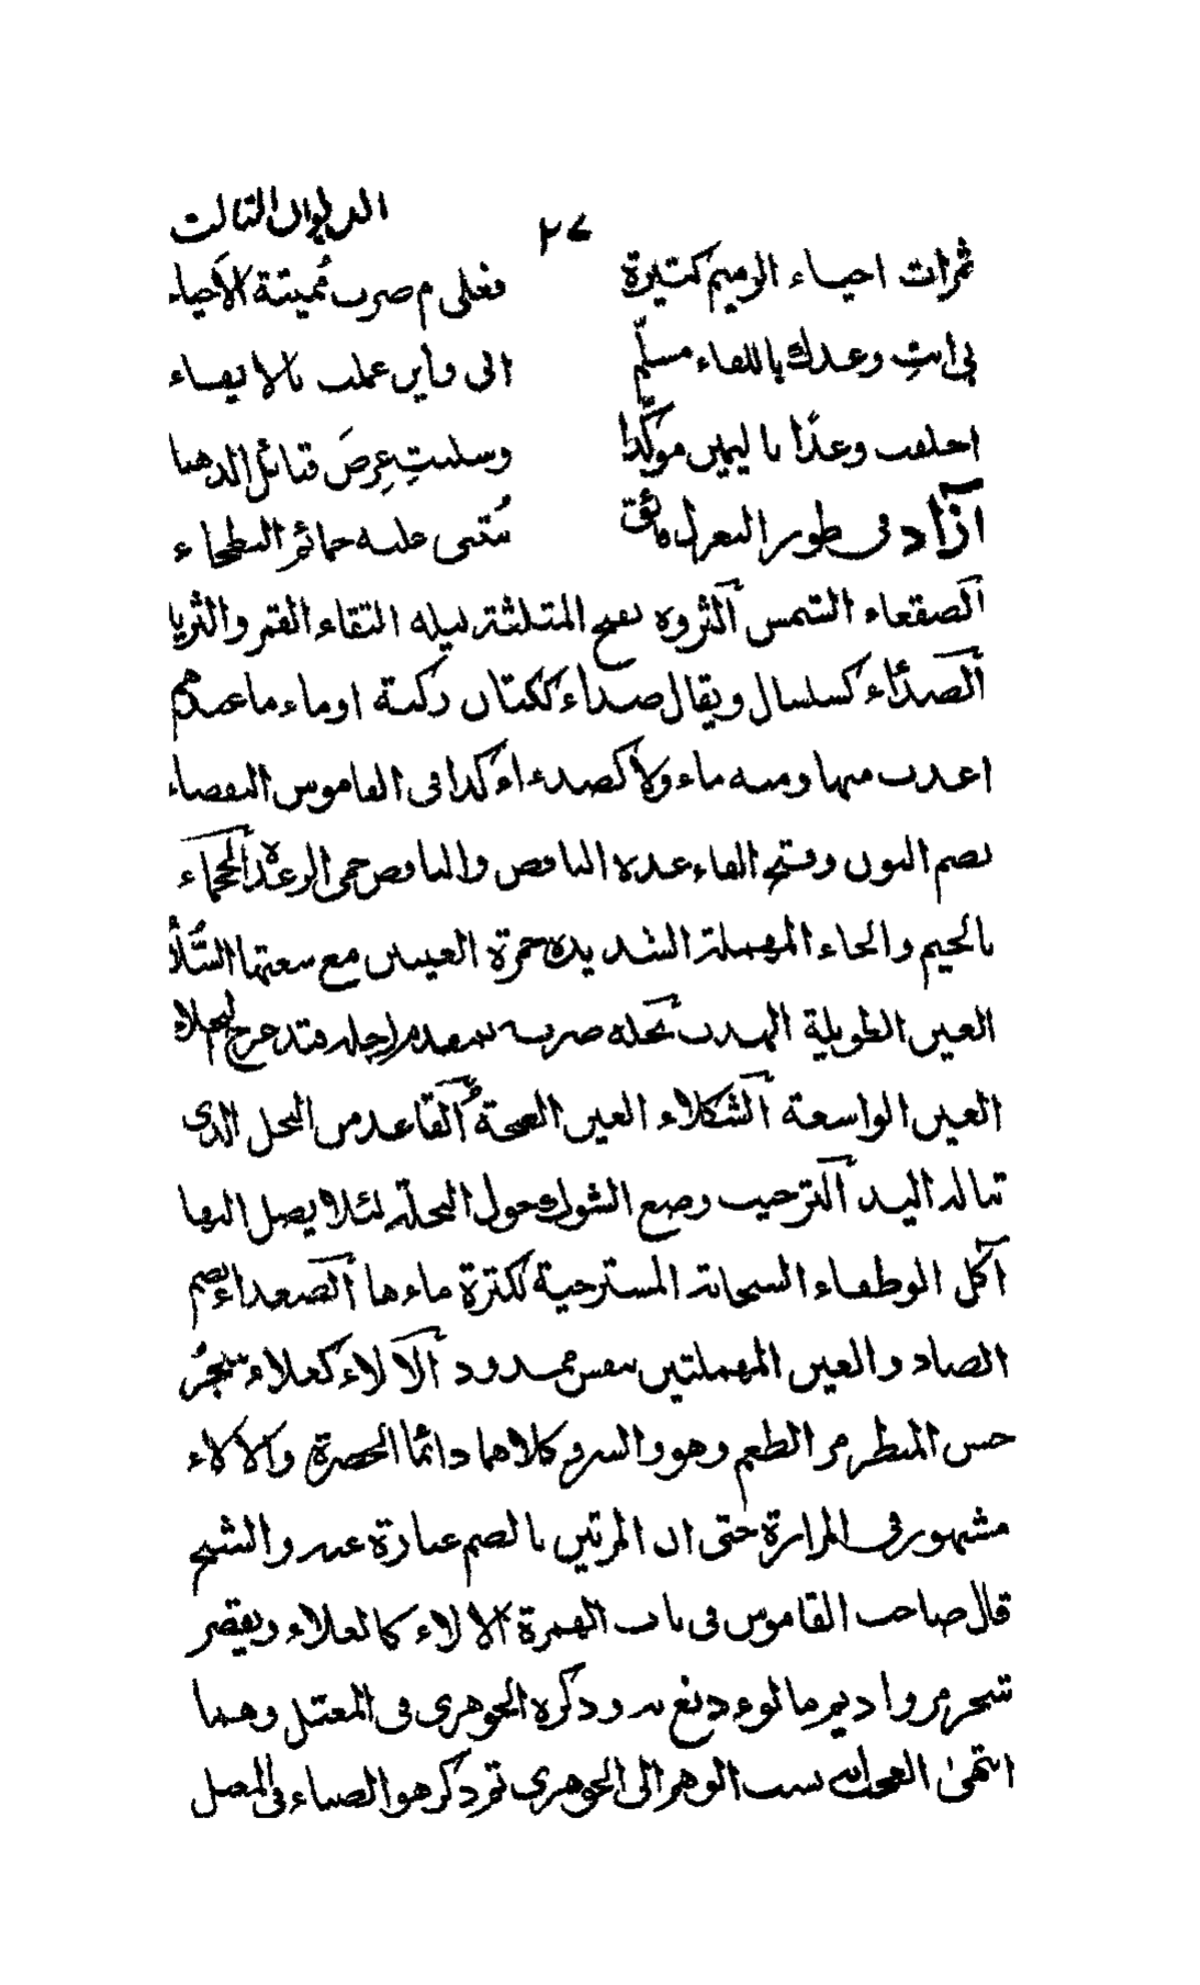 الديوان الثالث
٢٧
ثمرات احياء الرميم كثيرة فعلى م صرت مُميتة الاَحياء
بي انتِ وعدك باللقاء مسلّم انى وأين عملت بالايفاء
احلفت وعدًا باليمين موكّدا وسلبتِ عِرضَ قبائل الدهنا
آزاد في طور التغزل فائق تُثنى عليه حمائم البطحاء
الصقعاء الشمس الثروه بفتح المثلثة ليله التقاء القمر والثريا
الصدّاء كسلسال ويقال صداء ككتان ركية او ماء ما عندهم
اعذب منها ومنه ماء ولا كصداء كذا في القاموس النفضاء
بضم النون وفتح الفاء عدة النافض والنافض حمى الرعدة الجحماء
بالجيم والحاء المهملة الشديدة حمرة العينين مع سعتها
العين الطويلة الهدب نجله ضربه بمقدم رجله فتدحرج النجلاء
العين الواسعة الشكلاء العين القاعد من النخل الذي
تناله اليد الترجيب وضع الشوك حول النخلة لئلا يصل اليها
آكل الوطفاء السحابة المسترخية لكثرة ماءها الصعداء بضم
الصاد والعين المهملتين نفس ممدود الآلاء كعلاء شجر
حسن المنظر مر الطعم وهو والسرو كلاهما دائما الخضرة والالاء
مشهور في المرارة حتى ان المرتين بالضم عبارة عنه والشيح
قال صاحب القاموس في باب الهمزة الالاء كالعلاء ويقصر
شجر مر واديم مالوء دبغ به وذكره الجوهري في المعتل وهما
انتهى العجب انه نسب الوهم الى الجوهري ثم ذكر هو الصاء في المعتل